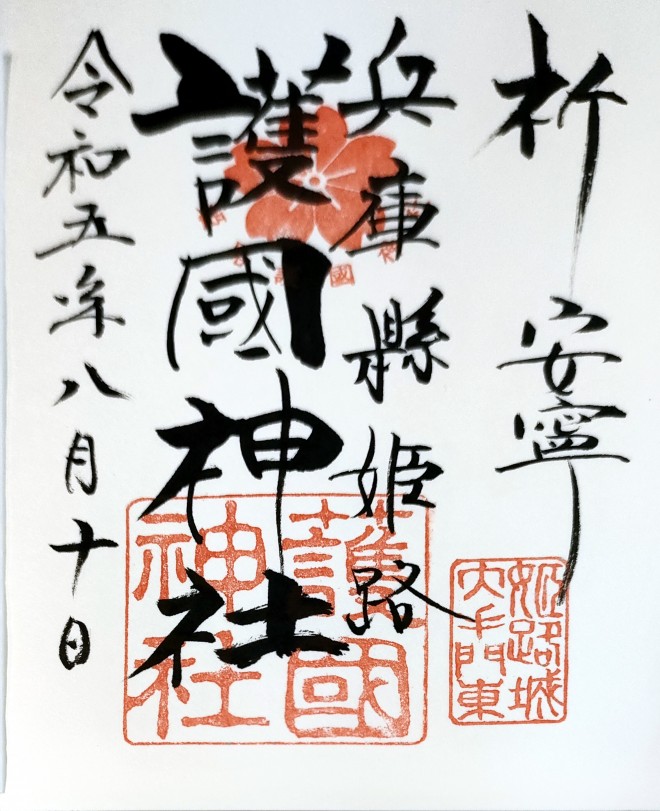 祈 安寧
兵庫縣姫路
護國神社
令和五年八月十日
護國
神社
姫路城
大手門東